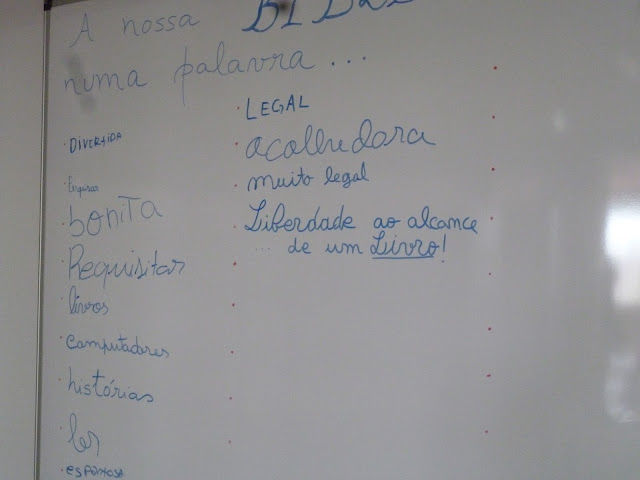 A nossa BIBL
numa palavra...
· DIVERTIDA
· bonita
· Requisitar
· livros
· computadores
· histórias
· ler
· LEGAL
· acolhedora
· muito legal
· Liberdade ao alcance
... de um Livro!